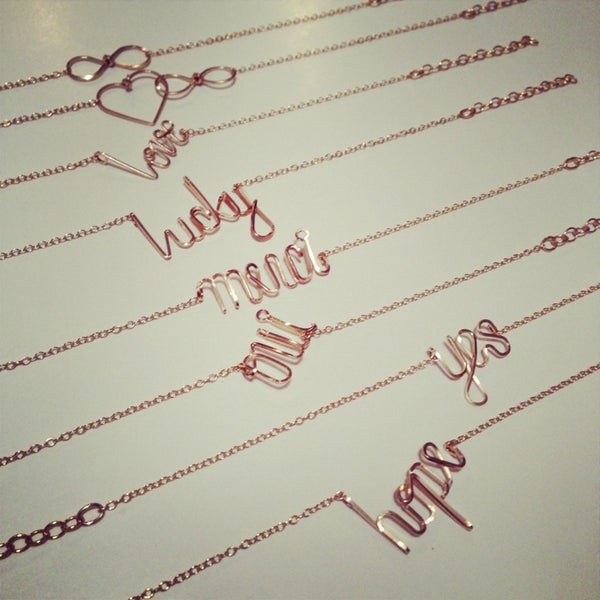 love
lucky
merci
oui
yes
hope